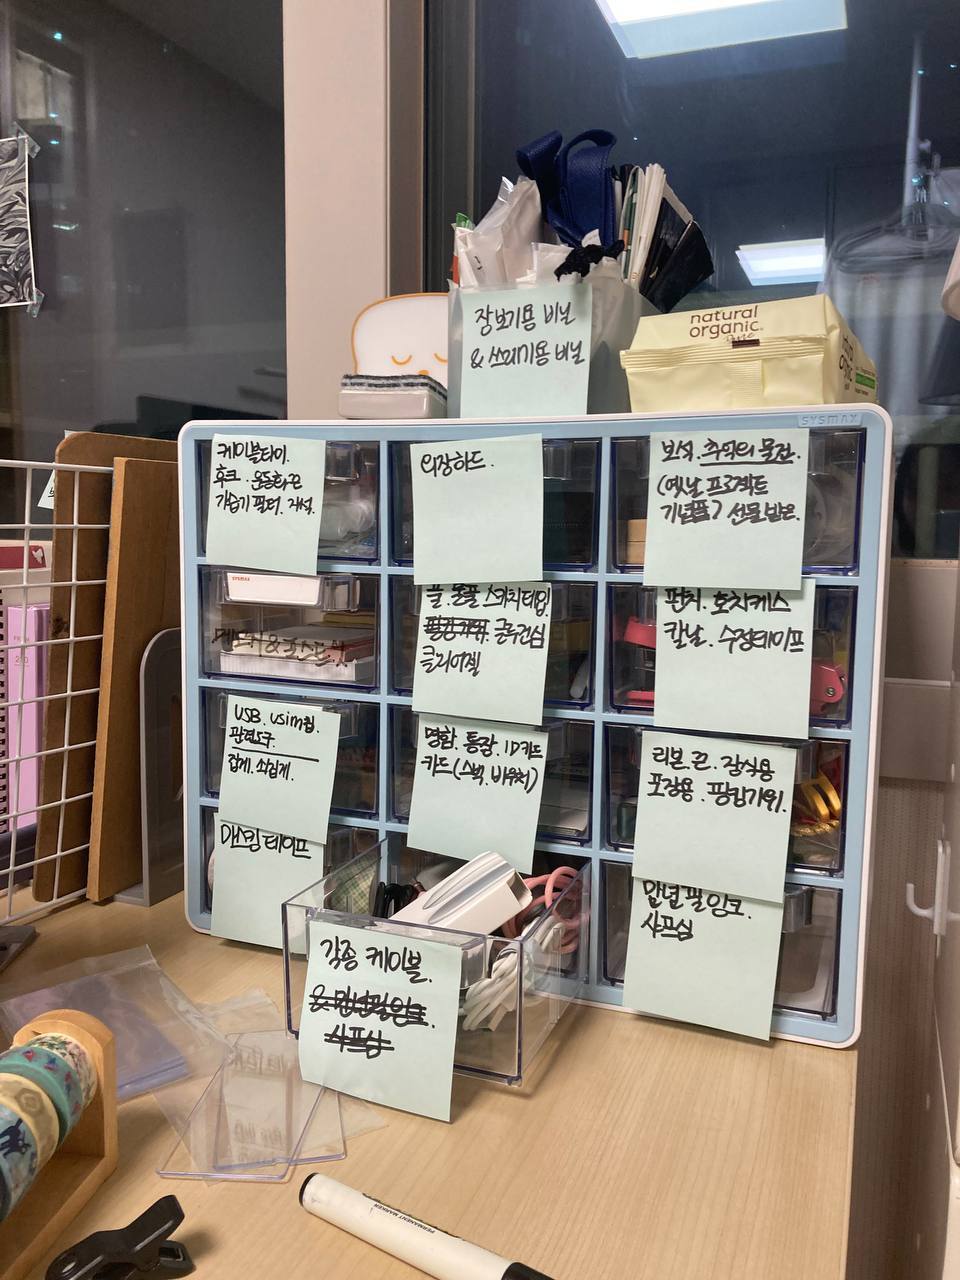 장보기용 비닐
& 쓰레기용 비닐
natural
organic
Pure
SYSMAX
케이블타이.
후크. 운동화끈
가습기 필터. 자석.
외장하드.
보석. 추억의 물건.
(옛날 프로젝트
기념품) 선물받은.
SYSMAX
풀. 목풀 스카치테잎.
핑킹가위. 글루건심
클리어젤
펀치. 호치케스
칼날. 수정테이프
USB. usim칩.
관련도구.
집게. 소집게.
명함. 통장. ID카드
카드(스벅. 바우처)
리본. 끈. 장식용
포장용. 핑킹가위.
마스킹 테이프
각종 케이블.
& 만년필잉크.
샤프심
만년필 잉크.
샤프심
PERMANENT MARKER